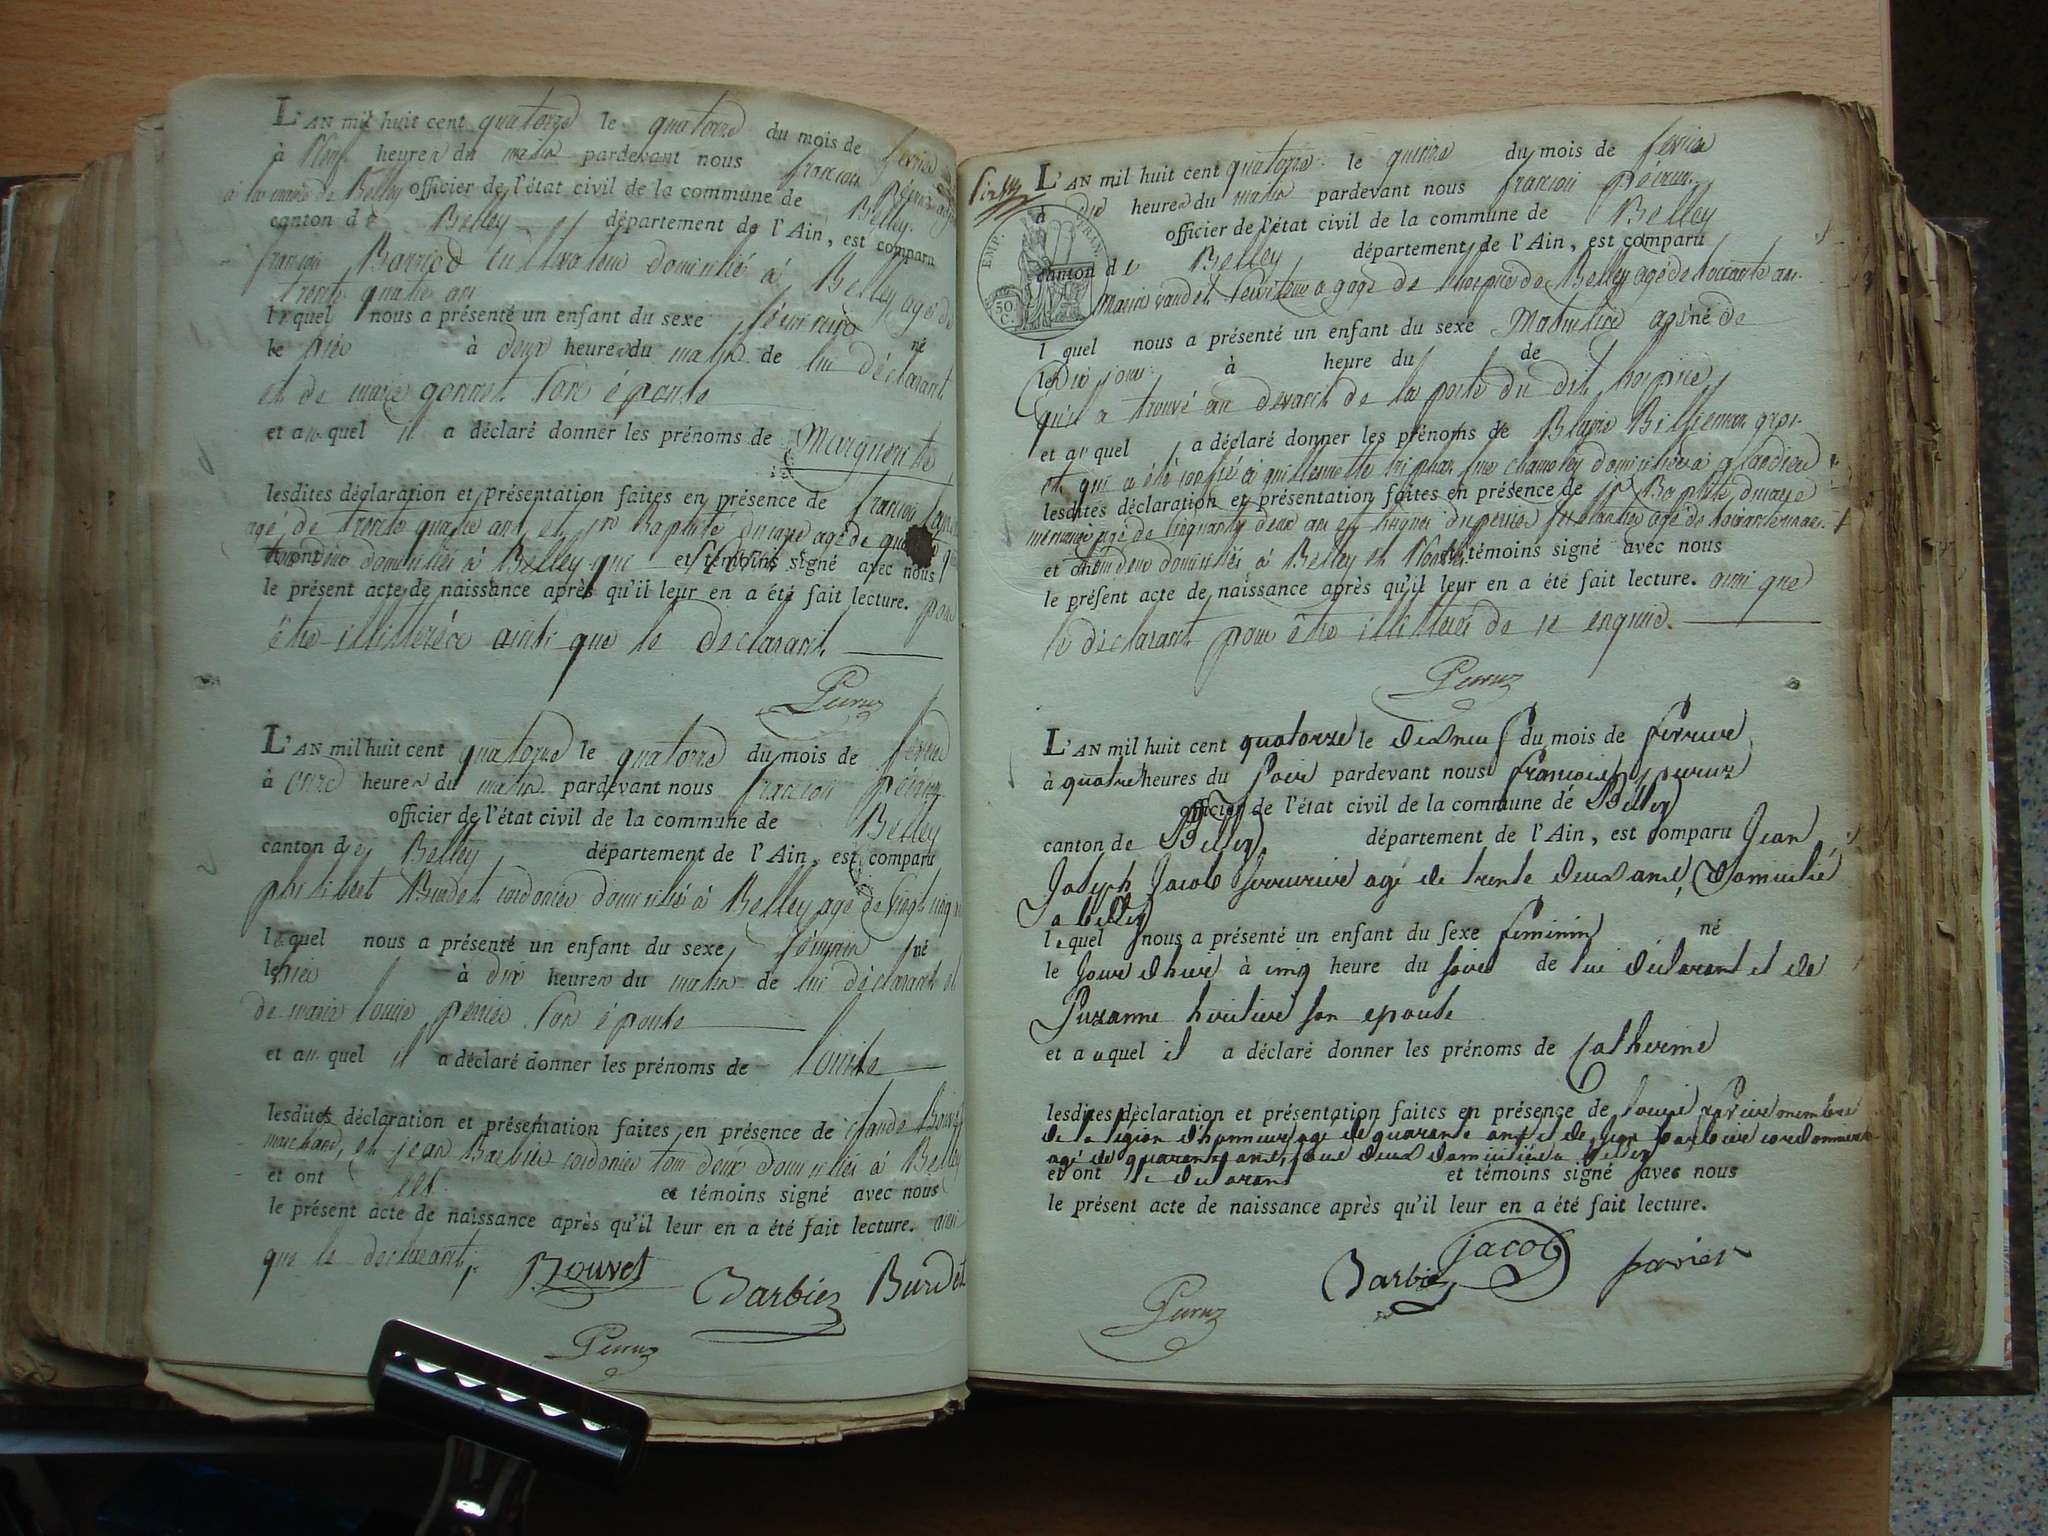 L'AN mil huit cent quatorze le quatorze du mois de fevrier
à heures du matin pardevant nous françois
à la mairie de Belley officier de l'état civil de la commune de Belley
canton de Belley département de l'Ain, est comparu
françois domicilié à Belley agé de
trente quatre ans
lequel nous a présenté un enfant du sexe féminin né
le à deux heures du matin de lui déclarant
et de marie son épouse
et auquel il a déclaré donner les prénoms de Marguerite
lesdites déclaration et présentation faites en présence de françois
agé de trente quatre ans et jn Baptiste agé de
domiciliés à Belley et témoins signé avec nous
le présent acte de naissance après qu'il leur en a été fait lecture. pour
être illitérés ainsi que le déclarant
Peruz
L'AN mil huit cent quatorze le quatorze du mois de
à onze heures du matin pardevant nous françois
officier de l'état civil de la commune de Belley
canton de Belley département de l'Ain, est comparu
philibert Burdet cordonier domicilié à Belley agé de vingt cinq
lequel nous a présenté un enfant du sexe féminin né
le hier à dix heures du matin de lui déclarant et
de marie louise perrier son épouse
et auquel il a déclaré donner les prénoms de louise
lesdites déclaration et présentation faites en présence de claude Bouvet
marchand, et jean Barbier cordonier tous deux domiciliés à Belley
et ont les et témoins signé avec nous
le présent acte de naissance après qu'il leur en a été fait lecture. ainsi
que le declarant,
Bouvet Barbier Burdet
Peruz
L'AN mil huit cent quatorze le quinze du mois de fevrier
à dix heures du matin pardevant nous françois
officier de l'état civil de la commune de Belley
EMP. FRAN.
50 C.
canton de Belley département de l'Ain, est comparu
serviteur a gage de l'hospice de Belley agé de soixante ans
lquel nous a présenté un enfant du sexe Masculin agé né de
le dix jours à heure du de
qu'il a trouvé au devant de la porte du dit hospice
et auquel il a déclaré donner les prénoms de Blaise
et qui a été confié à guillemette domiciliée à
lesdites déclaration et présentation faites en présence de Jn Baptiste
agé de cinquante deux ans et agé de
et ont tous deux domiciliés à Belley et témoins signé avec nous
le présent acte de naissance après qu'il leur en a été fait lecture. ainsi que
le déclarant pour être illitérés de ce enquis.
Peruz
L'AN mil huit cent quatorze le dixneuf du mois de fevrier
à quatre heures du soir pardevant nous françois peruz
officier de l'état civil de la commune de Belley
canton de Belley département de l'Ain, est comparu Jean
Joseph Jacob serrurier agé de trente deux ans, domicilié
a belley
lequel nous a présenté un enfant du sexe feminin né
le jour d'hier à cinq heure du soir de lui déclarant et de
Suzanne son epouse
et a uquel il a déclaré donner les prénoms de catherine
lesdites déclaration et présentation faites en présence de louis membre
de la legion d'honneur agé de quarante ans et de jean barbier cordonnier
agé de quarante ans, tous deux domiciliés a belley
et ont le declarant et témoins signé avec nous
le présent acte de naissance après qu'il leur en a été fait lecture.
Barbier Jacob
Peruz